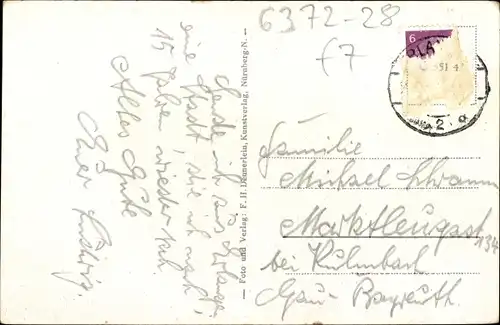 6372-28
f7
Sende ich aus Erlangen,
eine Stadt, die ich nach
15 Jahren wieder sah
Alles Gute
Euer Ludwig.
— Foto und Verlag: F. H. Dämmerlein, Kunstverlag, Nürnberg-N. —
6
51 4
2 a
Familie
Michael Schramm
Marktleugast 134
bei Kulmbach
Gau-Bayreuth.